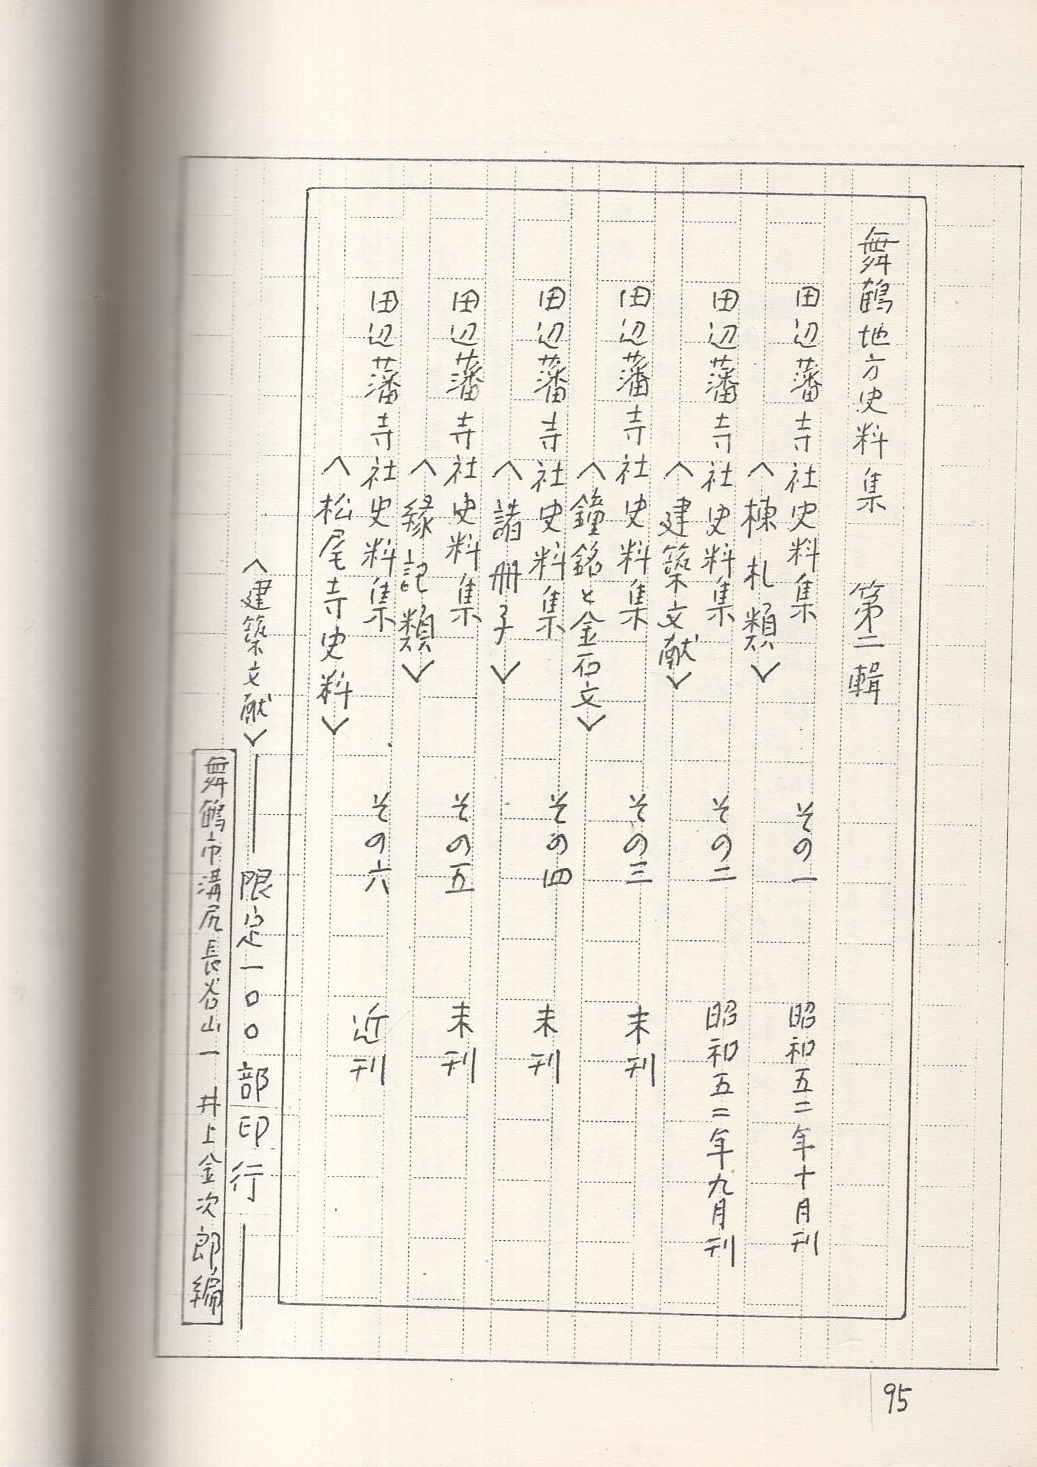 舞鶴地方史料集　第二輯
田辺藩寺社史料集　その一　昭和五二年十月刊
〈棟札類〉
田辺藩寺社史料集　その二　昭和五二年九月刊
〈建築文献〉
田辺藩寺社史料集　その三　未刊
〈鐘銘と金石文〉
田辺藩寺社史料集　その四　未刊
〈諸冊子〉
田辺藩寺社史料集　その五　未刊
〈縁記類〉
田辺藩寺社史料集　その六　近刊
〈松尾寺史料〉
〈建築文献〉――限定一〇〇部印行――
舞鶴市溝尻長谷山一　井上金次郎編
95